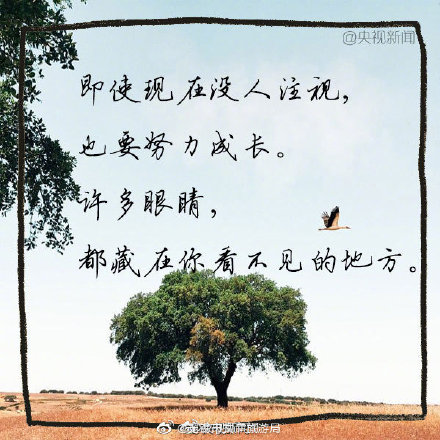 @央视新闻
即使现在没人注视，
也要努力成长。
许多眼睛，
都藏在你看不见的地方。